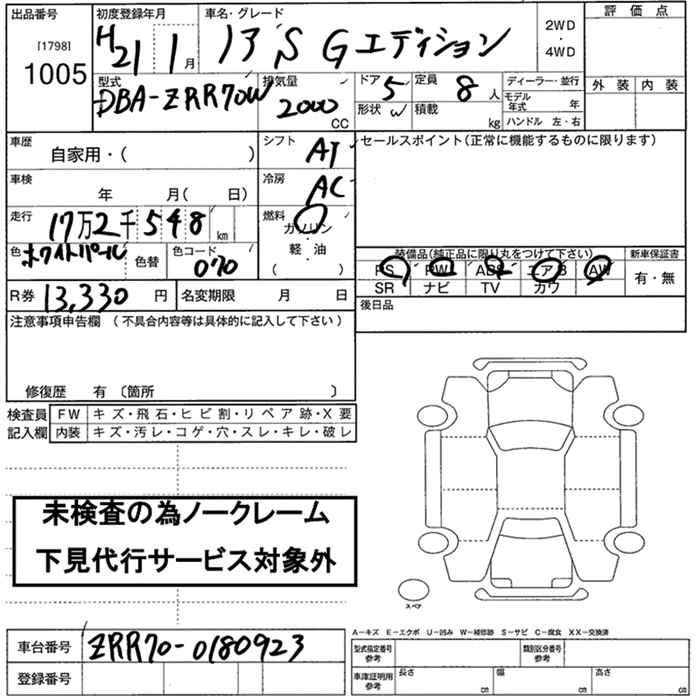 出品番号 初度登録年月 車名・グレード 2WD・4WD 評価点
[1798] 1005 H21 1月 ノア S Gエディション
型式 排気量 ドア 5 定員 8人 ディーラー・並行 外装 内装
DBA-ZRR70W 2000CC 形状 W 積載 kg モデル年式 年
ハンドル 左・右
車歴 自家用・( ) シフト AT セールスポイント(正常に機能するものに限ります)
車検 年 月( 日) 冷房 AC
走行 17万2千548km 燃料 ガソリン
軽・油
( )
色 ホワイトパール 色替 色コード 070 装備品(純正品に限り丸をつけて下さい) 新車保証書
PS PW ABS エアB AW 有・無
SR ナビ TV カワ
R券 13,330円 名変期限 月 日 後日品
注意事項申告欄 (不具合内容等は具体的に記入して下さい)
修復歴 有 〔箇所 〕
検査員 FW キズ・飛石・ヒビ割・リペア跡・X要
記入欄 内装 キズ・汚レ・コゲ・穴・スレ・キレ・破レ
未検査の為ノークレーム
下見代行サービス対象外
スペア
A-キズ E-エクボ U-凹み W-補修跡 S-サビ C-腐食 XX-交換済
車台番号 ZRR70-0180923 型式指定番号 参考 類別区分番号 参考
登録番号 車庫証明用 参考 長さ cm 幅 cm 高さ cm